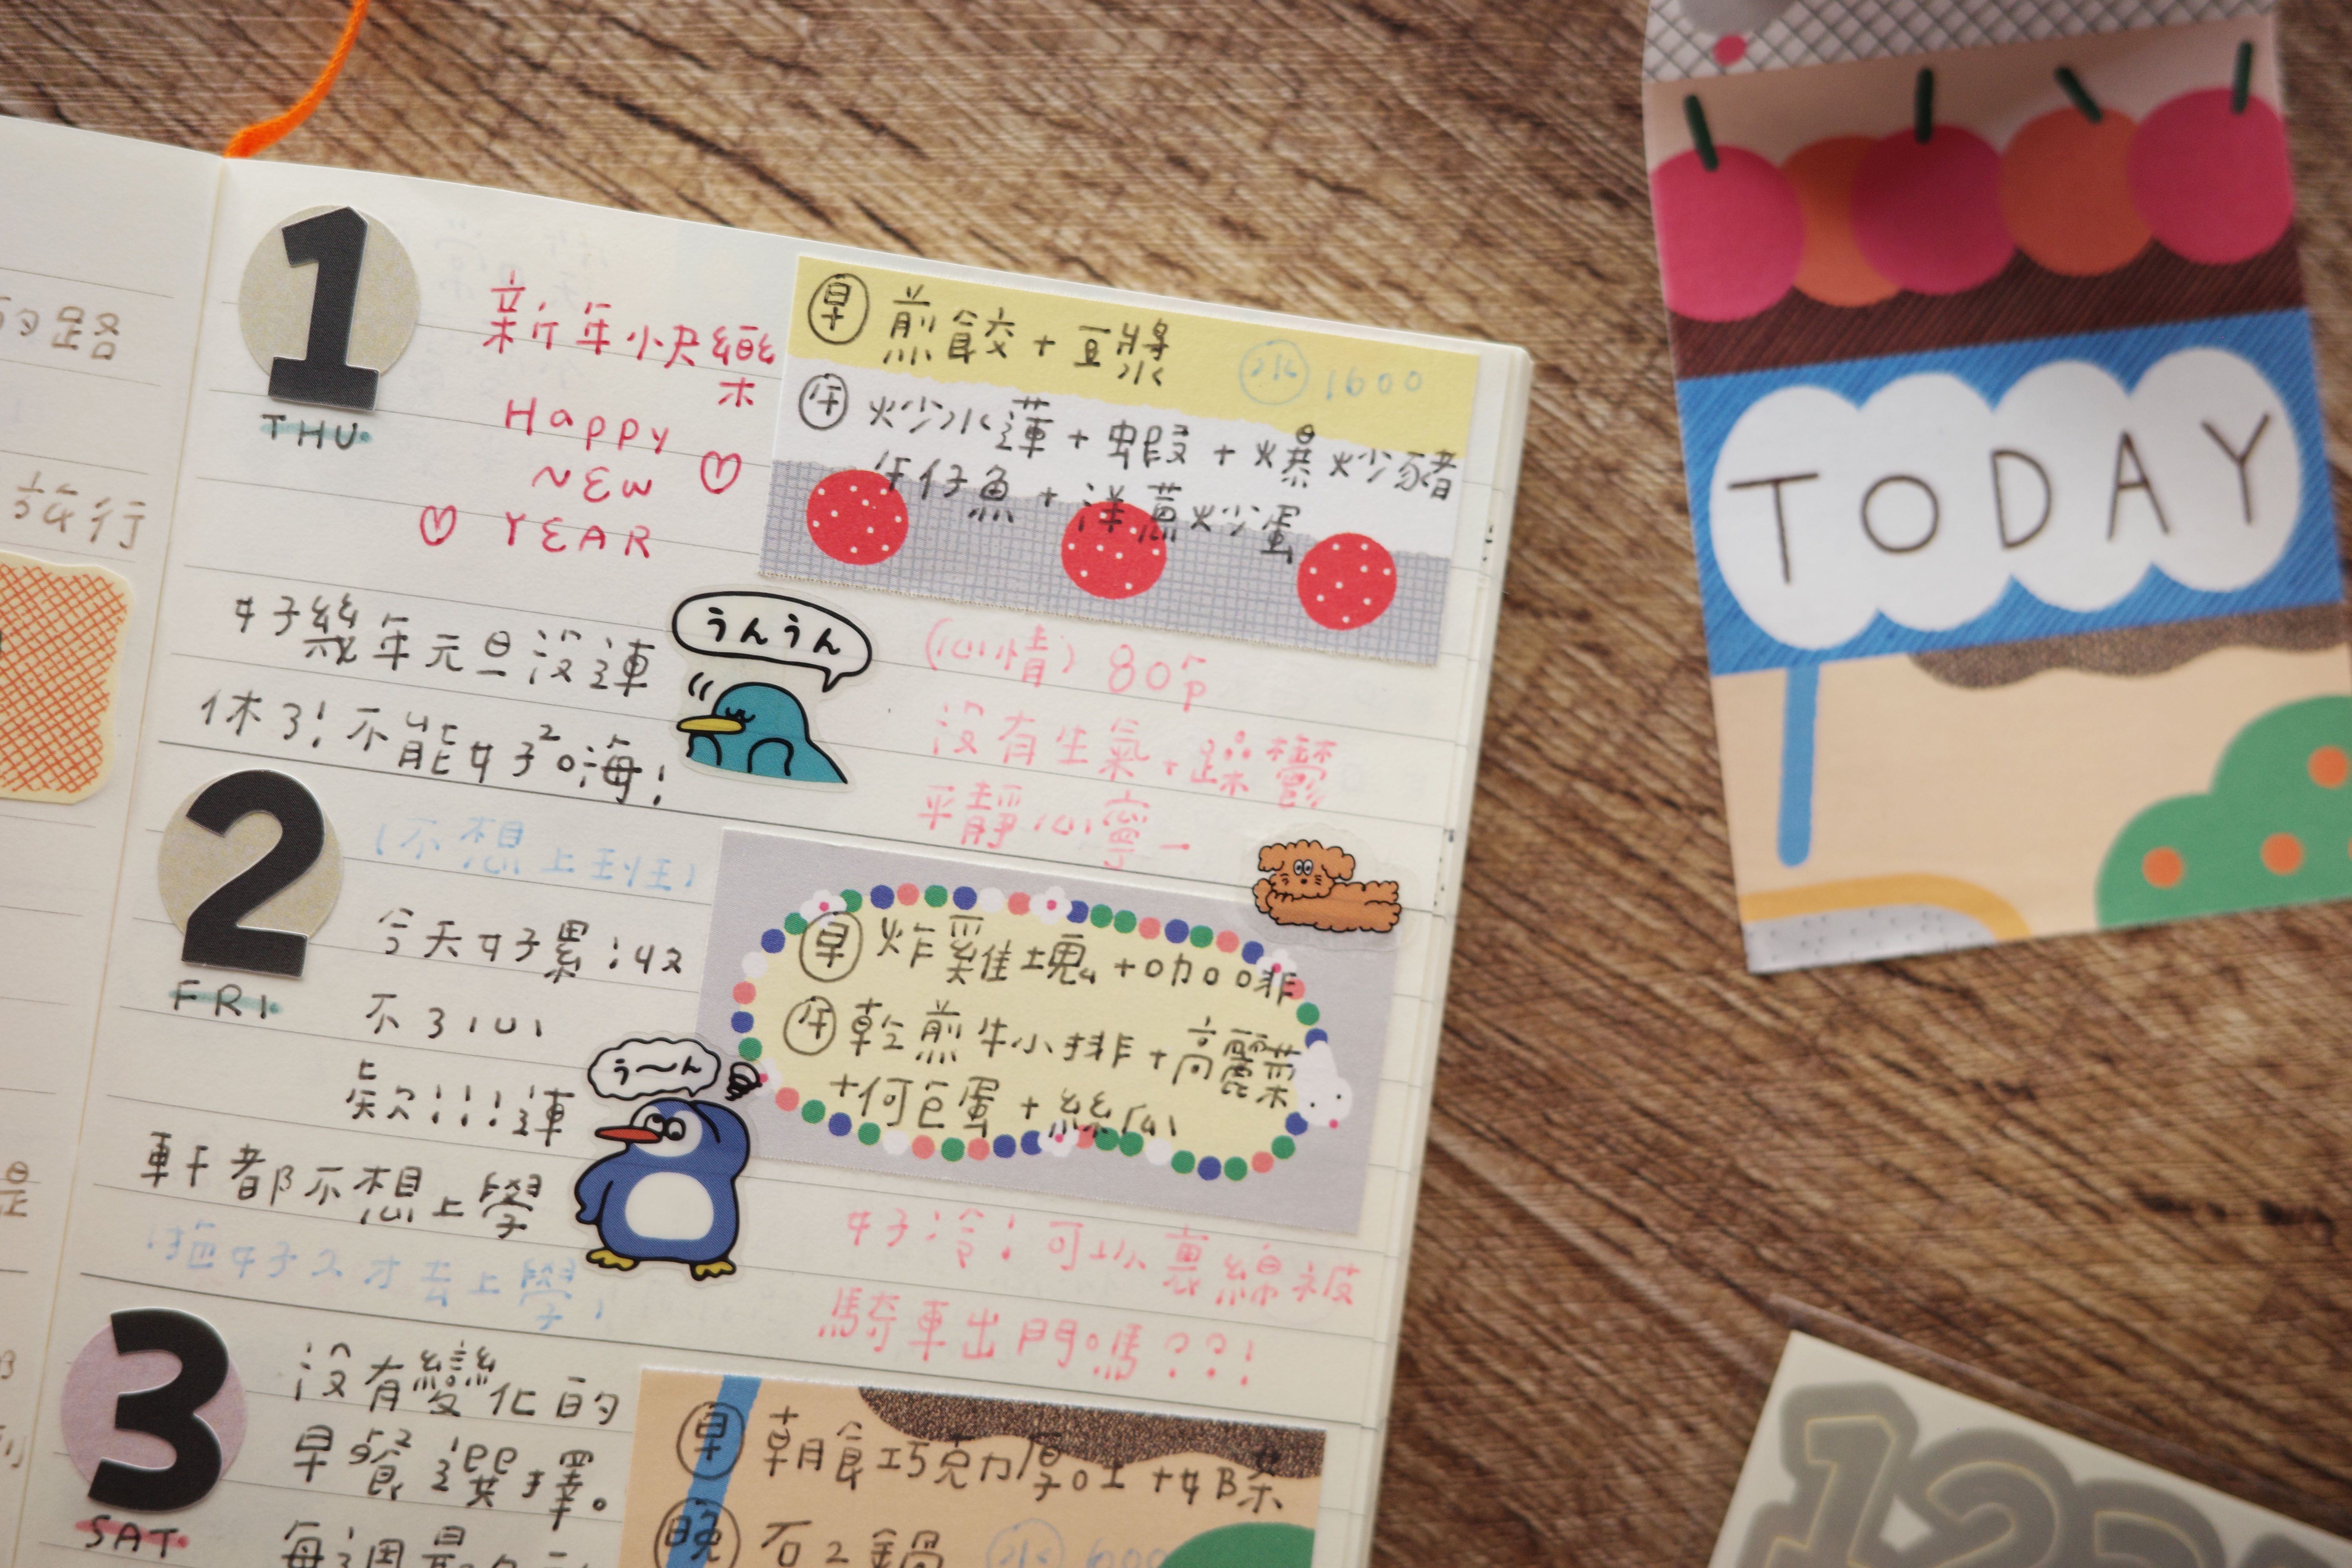 的路
旅行
1
THU.
新年快樂
Happy
NEW
YEAR
早 煎餃+豆漿
水 1600
午 炒水蓮+蝦+爆炒豬
午仔魚+洋蔥炒蛋
好幾年元旦沒連
休了!不能好好嗨!
うんうん
(心情)80分
沒有生氣、躁鬱
平靜心寧—
2
FRI.
(不想上班)
今天好累;收
不了心
欸!!!連
軒都不想上學
(拖好久才去上學)
う〜ん
早 炸雞塊+咖啡
午 乾煎牛小排+高麗菜
+荷包蛋+絲瓜
好冷!可以裹綿被
騎車出門嗎??!
3
SAT.
沒有變化的
早餐選擇。
每週最
早 朝食巧克力厚吐+奶茶
晚 石2鍋
水 600
TODAY
123